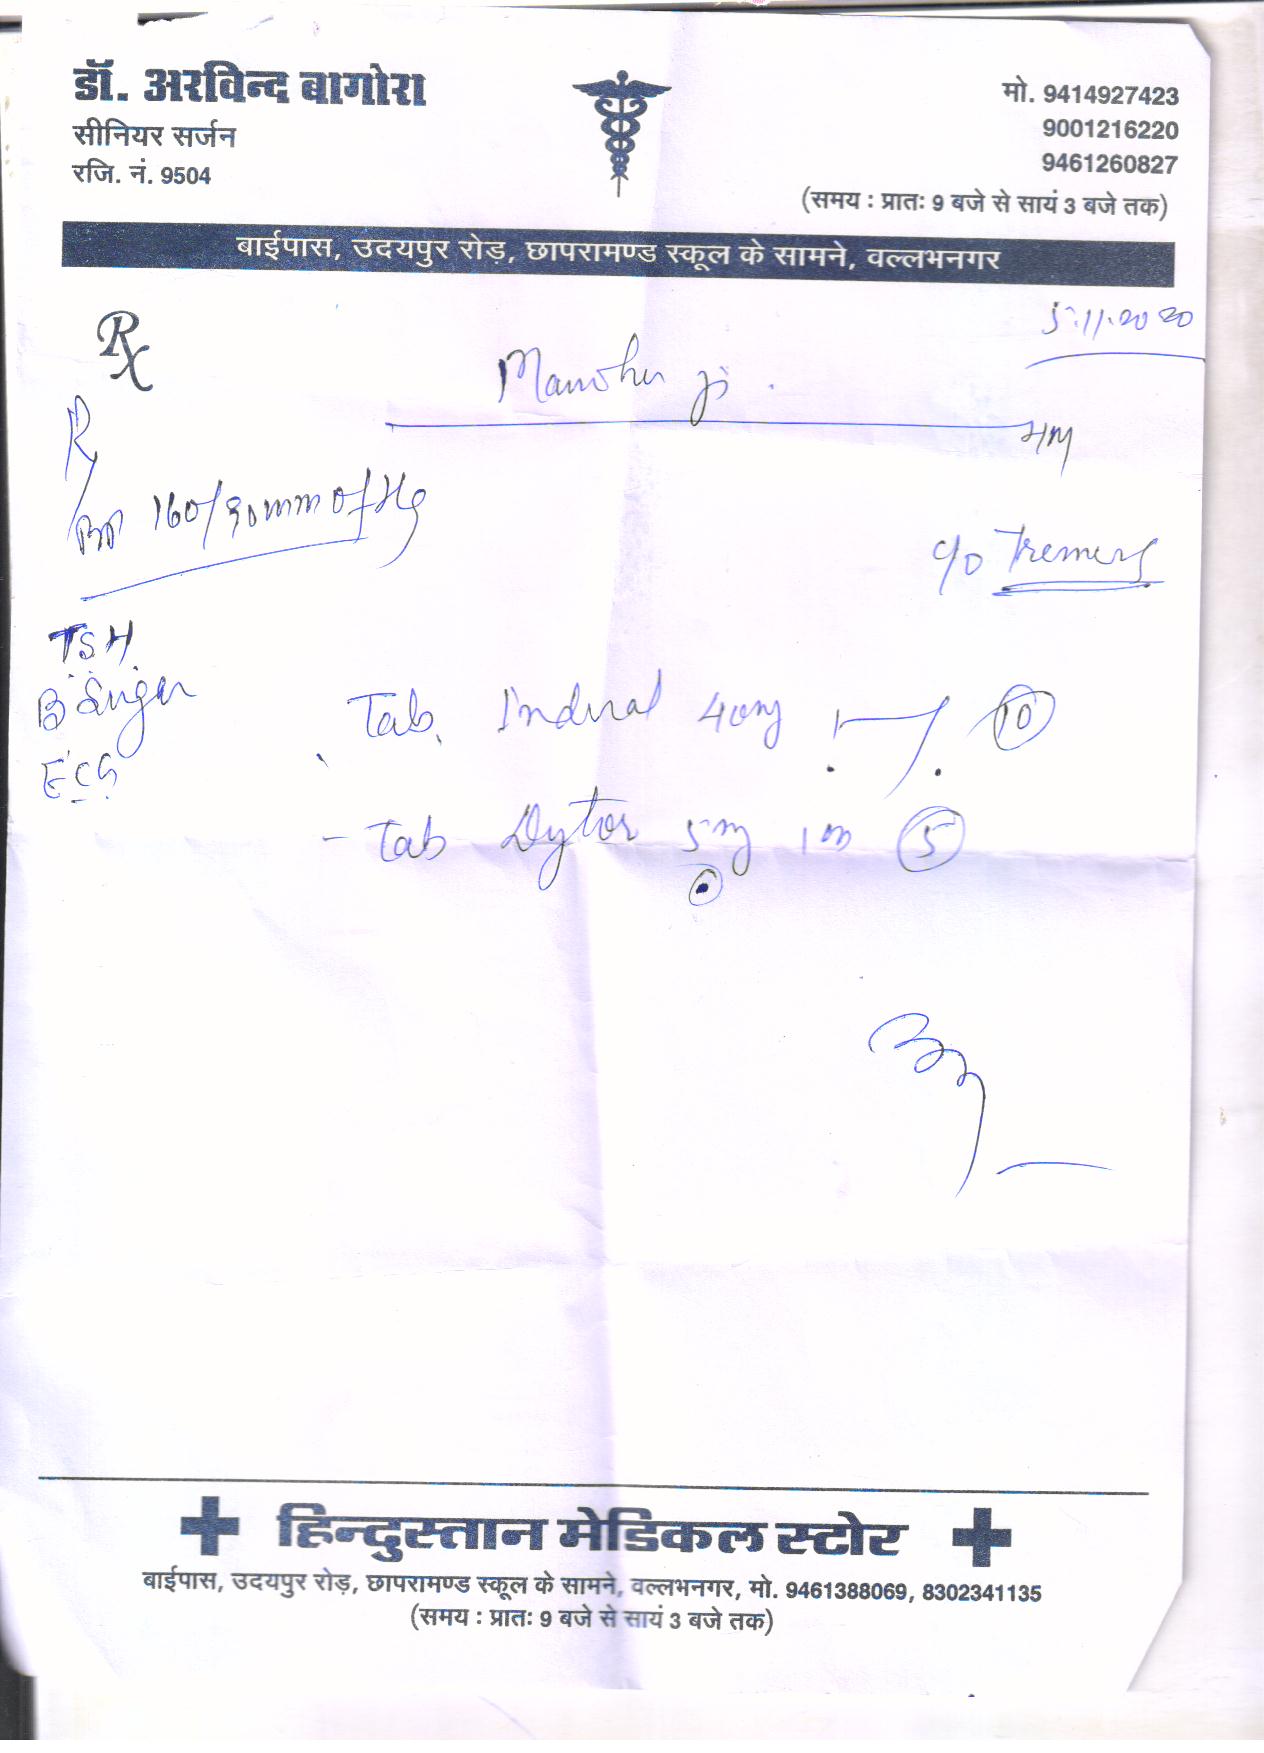 डॉ. अरविन्द बागोरा
सीनियर सर्जन
रजि. नं. 9504
मो. 9414927423
9001216220
9461260827
(समय : प्रातः 9 बजे से सायं 3 बजे तक)
बाईपास, उदयपुर रोड़, छापरामण्ड स्कूल के सामने, वल्लभनगर
Rx
5.11.2020
Manohar ji
R
BP 160/90 mm of Hg
c/o Tremers
TSH
B Sugar
ECG
Tab. Indural 40mg 10
- Tab Dytor 5mg 5
हिन्दुस्तान मेडिकल स्टोर
बाईपास, उदयपुर रोड़, छापरामण्ड स्कूल के सामने, वल्लभनगर, मो. 9461388069, 8302341135
(समय : प्रातः 9 बजे से सायं 3 बजे तक)